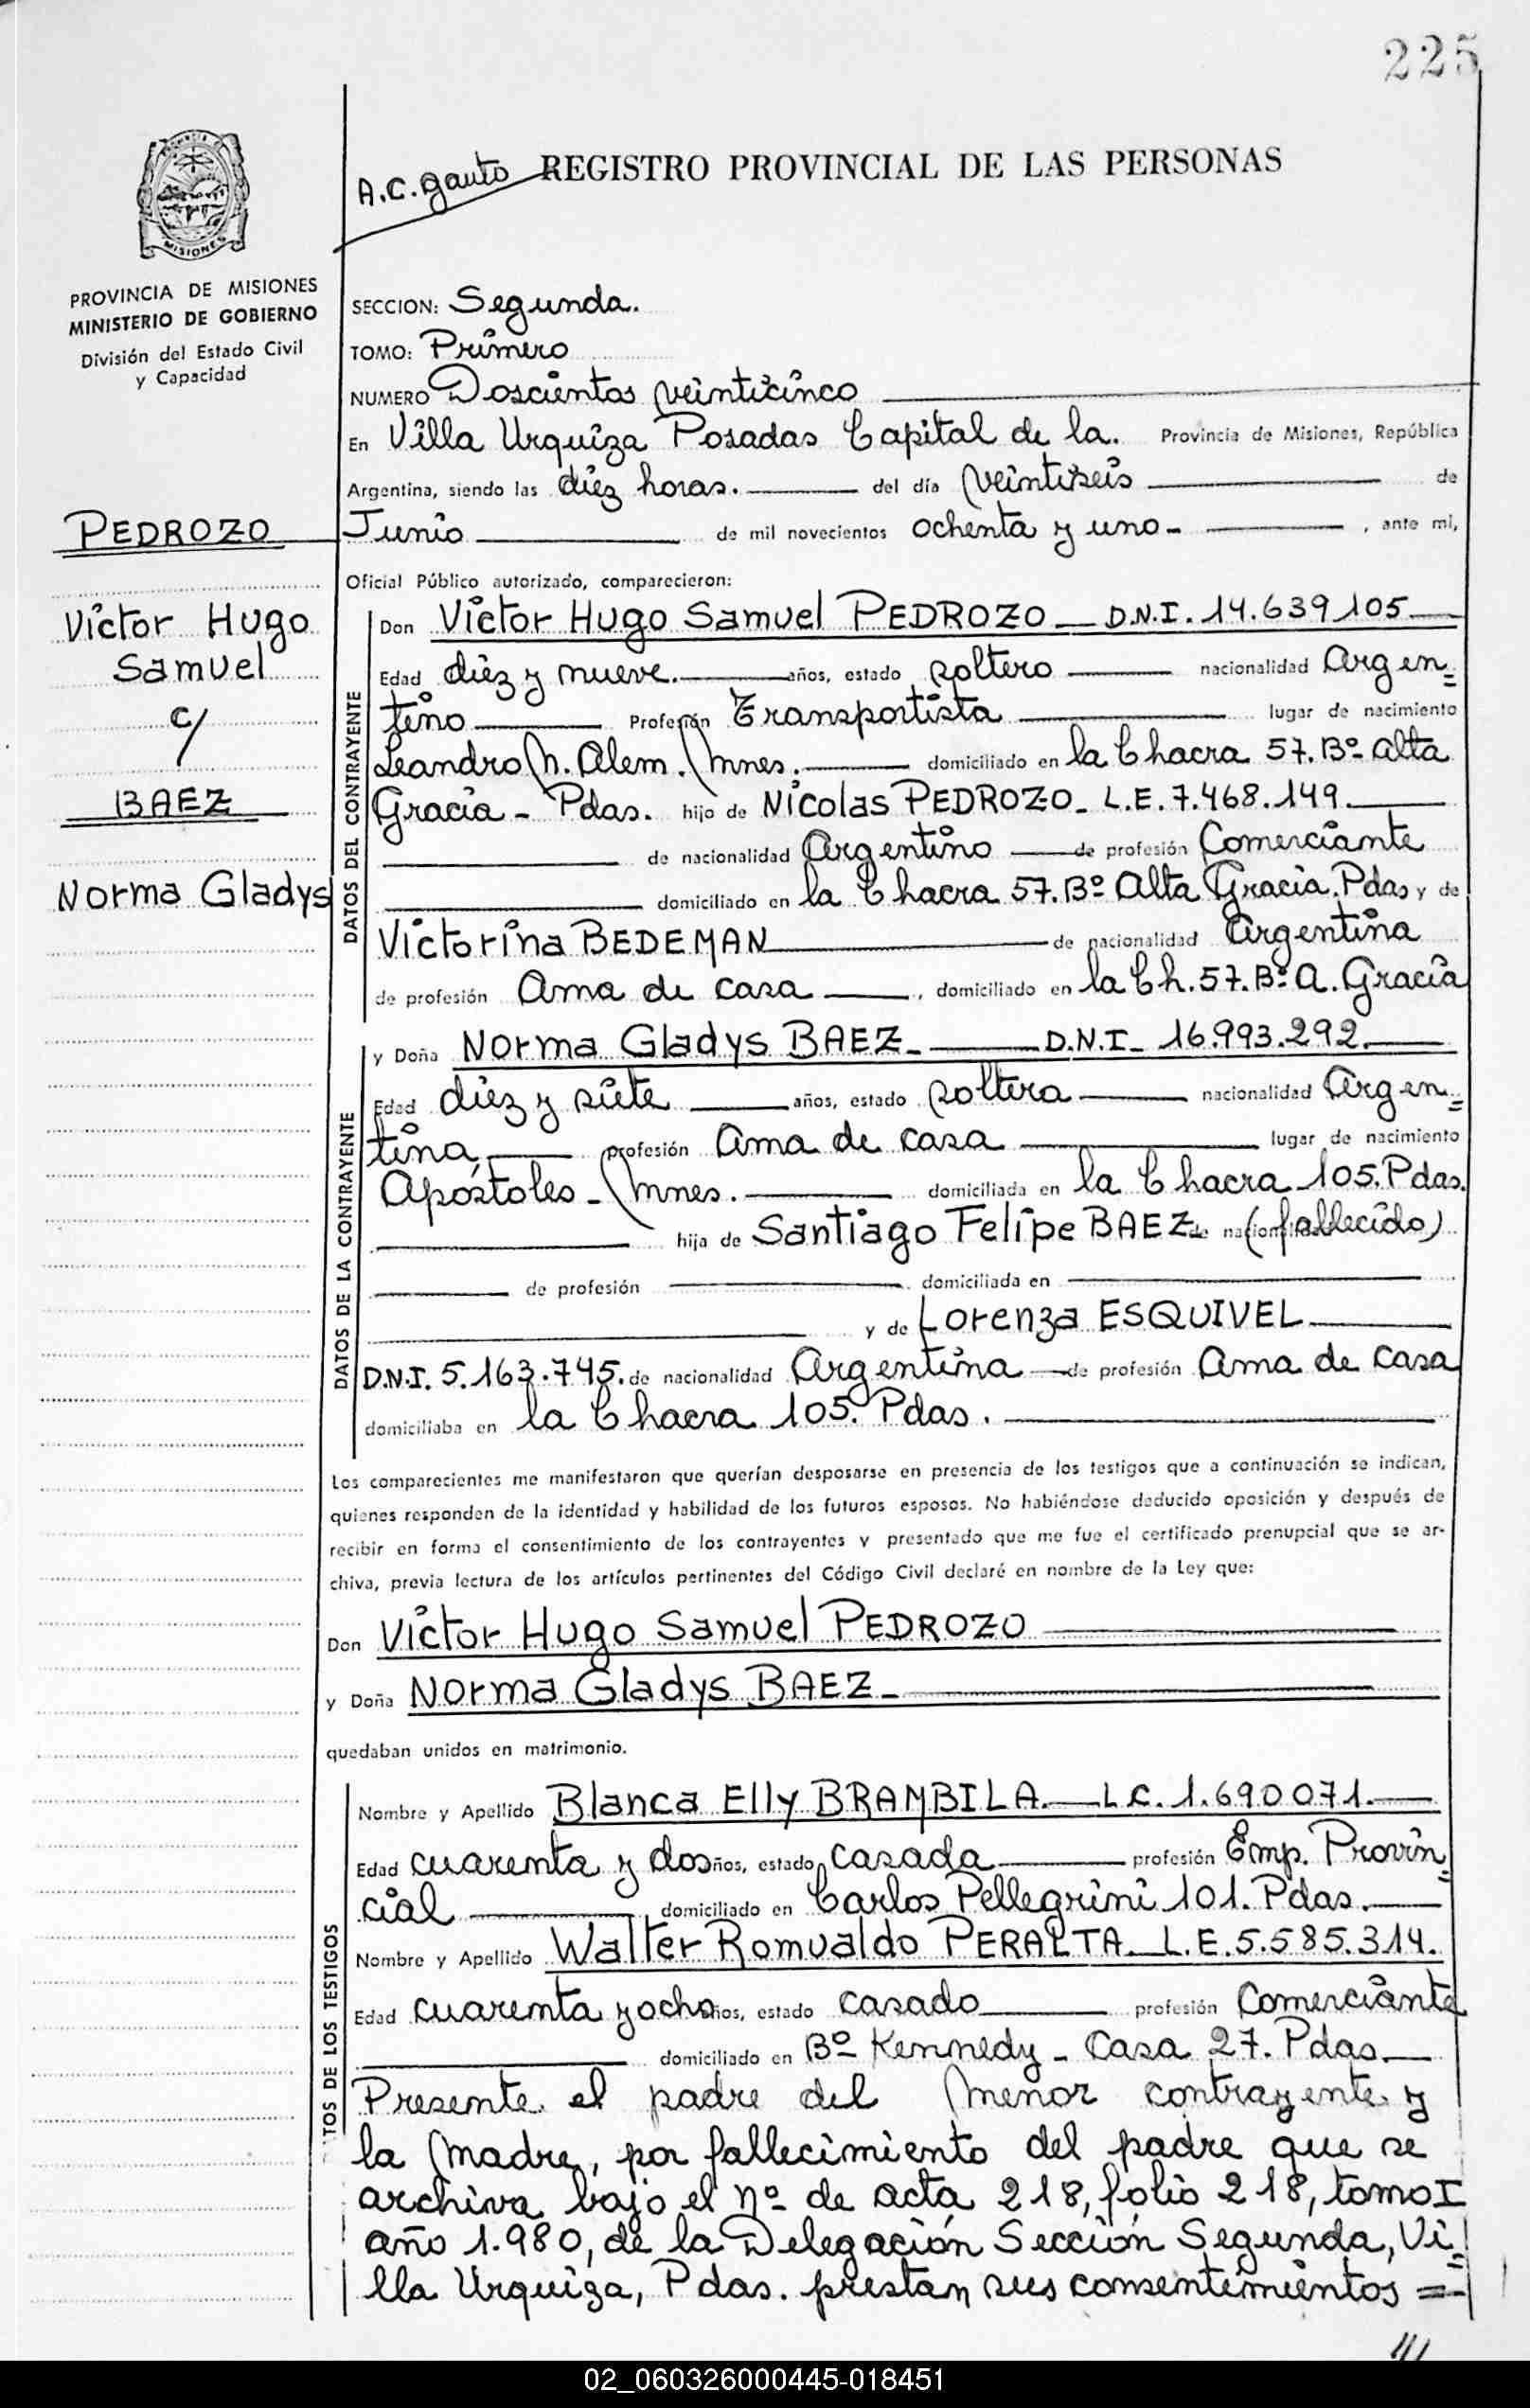 225
A.C. Gauto
REGISTRO PROVINCIAL DE LAS PERSONAS
MISIONES
PROVINCIA DE MISIONES
MINISTERIO DE GOBIERNO
División del Estado Civil
y Capacidad
SECCION: Segunda.
TOMO: Primero
NUMERO Doscientos veinticinco
En Villa Urquiza Posadas Capital de la. Provincia de Misiones, República
Argentina, siendo las diez horas. del día veintiseis de
Junio de mil novecientos ochenta y uno- , ante mi,
PEDROZO
Victor Hugo
Samuel
c/
BAEZ
Norma Gladys
Oficial Público autorizado, comparecieron:
DATOS DEL CONTRAYENTE
Don Victor Hugo Samuel PEDROZO D.N.I. 14.639105
Edad diez y nueve. años, estado soltero nacionalidad Argen=
tino Profesión Transportista lugar de nacimiento
Leandro N. Alem. Mnes. domiciliado en la Chacra 57. Bº Alta
Gracia - Pdas. hijo de Nicolas PEDROZO- L.E. 7.468.149.
de nacionalidad Argentino de profesión Comerciante
domiciliado en la Chacra 57. Bº Alta Gracia. Pdas y de
Victorina BEDEMAN de nacionalidad Argentina
de profesión Ama de casa , domiciliado en la Ch. 57. Bº A. Gracia
DATOS DE LA CONTRAYENTE
y Doña Norma Gladys BAEZ- D.N.I- 16.993.292.
Edad diez y siete años, estado soltera nacionalidad Argen=
tina, profesión Ama de casa lugar de nacimiento
Apóstoles - Mnes. domiciliada en la Chacra 105. Pdas.
hija de Santiago Felipe BAEZ de nacionalidad (fallecido)
de profesión domiciliada en
y de Lorenza ESQUIVEL
D.N.I. 5.163.745. de nacionalidad Argentina de profesión Ama de casa
domiciliaba en la Chacra 105. Pdas.
Los comparecientes me manifestaron que querían desposarse en presencia de los testigos que a continuación se indican,
quienes responden de la identidad y habilidad de los futuros esposos. No habiéndose deducido oposición y después de
recibir en forma el consentimiento de los contrayentes y presentado que me fue el certificado prenupcial que se ar-
chiva, previa lectura de los artículos pertinentes del Código Civil declaré en nombre de la Ley que:
Don Victor Hugo Samuel PEDROZO
y Doña Norma Gladys BAEZ-
quedaban unidos en matrimonio.
TOS DE LOS TESTIGOS
Nombre y Apellido Blanca Elly BRAMBILA. L.C. 1.690071.
Edad cuarenta y dos años, estado casada profesión Emp. Provin=
cial domiciliado en Carlos Pellegrini 101. Pdas.
Nombre y Apellido Walter Romualdo PERALTA. L.E. 5.585.314.
Edad cuarenta y ocho años, estado casado profesión Comerciante
domiciliado en Bº Kennedy - Casa 27. Pdas.
Presente el padre del menor contrayente y
la madre, por fallecimiento del padre que se
archiva bajo el nº de acta 218, folio 218, tomo I
año 1.980, de la Delegación Sección Segunda, Vi=
lla Urquiza, Pdas. prestan sus consentimientos =
///
02_060326000445-018451